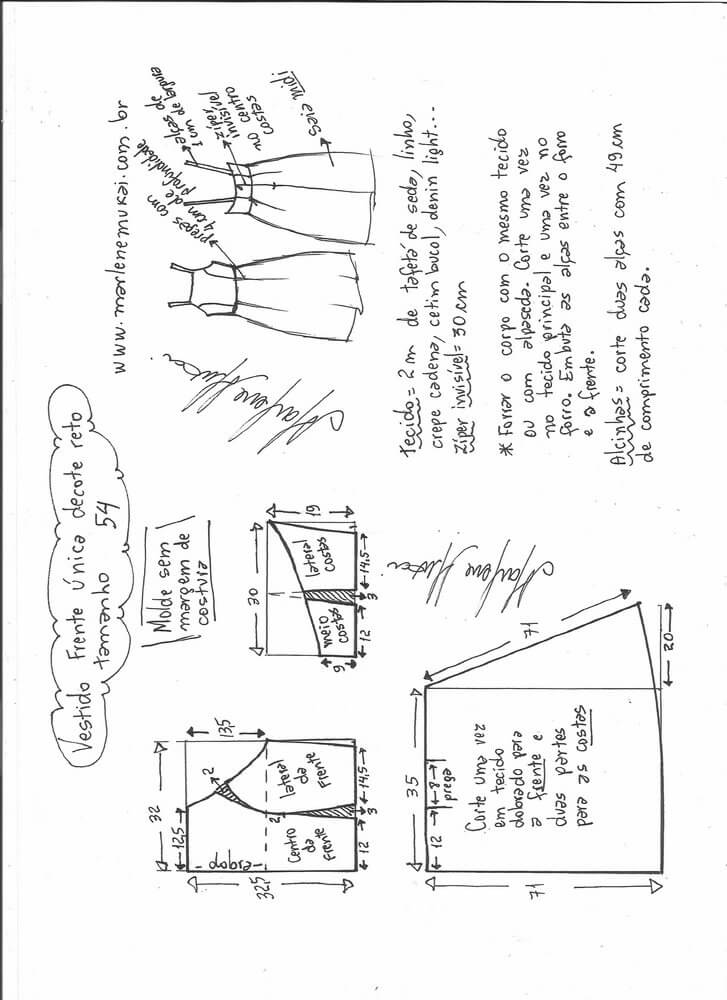 Vestido Frente única decote reto
tamanho 54
www.marlenemukai.com.br
Molde sem
margem de
costura
pregas com
4 cm de
profundidade
alças de
1 cm de largura
zíper
invisível
no centro
costas
saia midi
Marlene Mukai
32
12,5
13,5
32,5
2
2
dobra
Centro
da
frente
lateral
da
frente
12
3
14,5
30
19
9
meio
costas
lateral
costas
12
3
14,5
Tecido = 2 m de tafetá de seda, linho,
crepe cadena, cetim bucol, denin light...
Zíper invisível = 30 cm
* Forrar o corpo com o mesmo tecido
ou com alpaseda. Corte uma vez
no tecido principal e uma vez no
forro. Embuta as alças entre o forro
e a frente.
Alcinhas = corte duas alças com 49 cm
de comprimento cada.
Marlene Mukai
35
12
8
prega
71
71
20
Corte uma vez
em tecido
dobrado para
a frente e
duas partes
para as costas